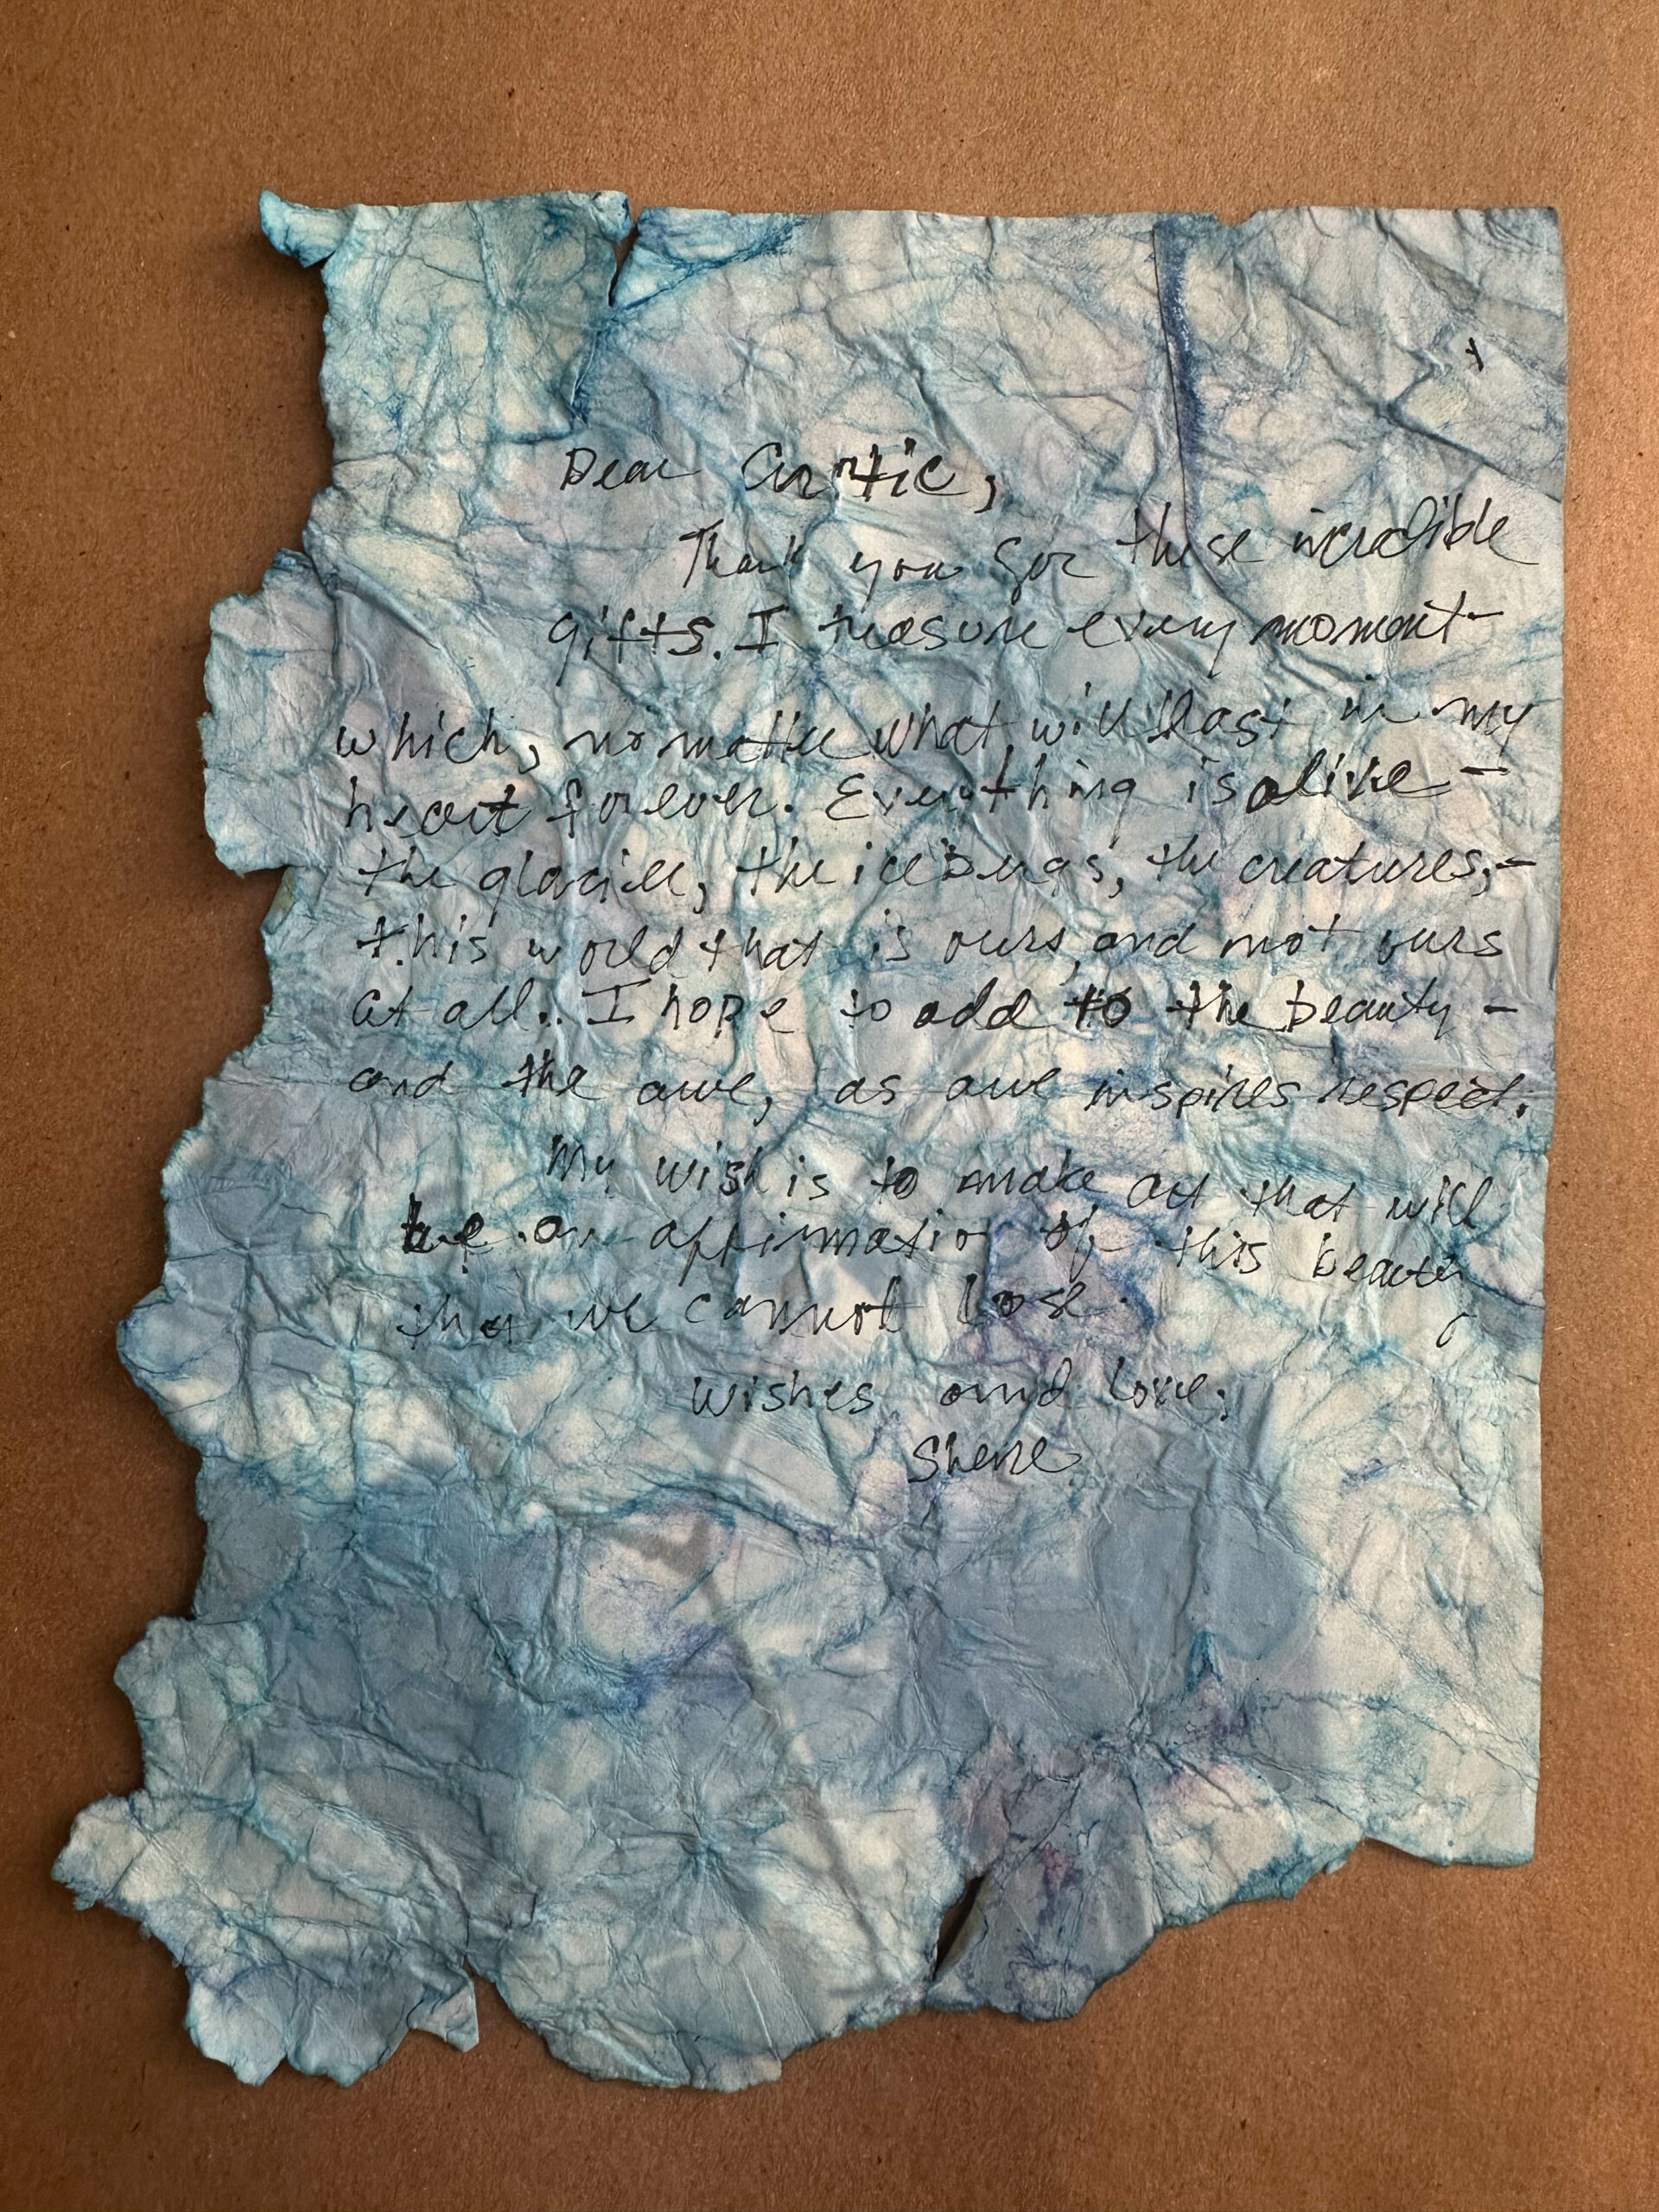 Dear Arctic,
Thank you for these incredible
gifts. I treasure every moment-
which, no matter what will last in my
heart forever. Everything is alive -
the glacier, the icebergs, the creatures,-
this world that is ours, and not ours
at all.. I hope to add to the beauty -
and the awe, as awe inspires respect.
My wish is to make art that will
be an affirmation of this beauty
that we cannot lose.
Wishes and love,